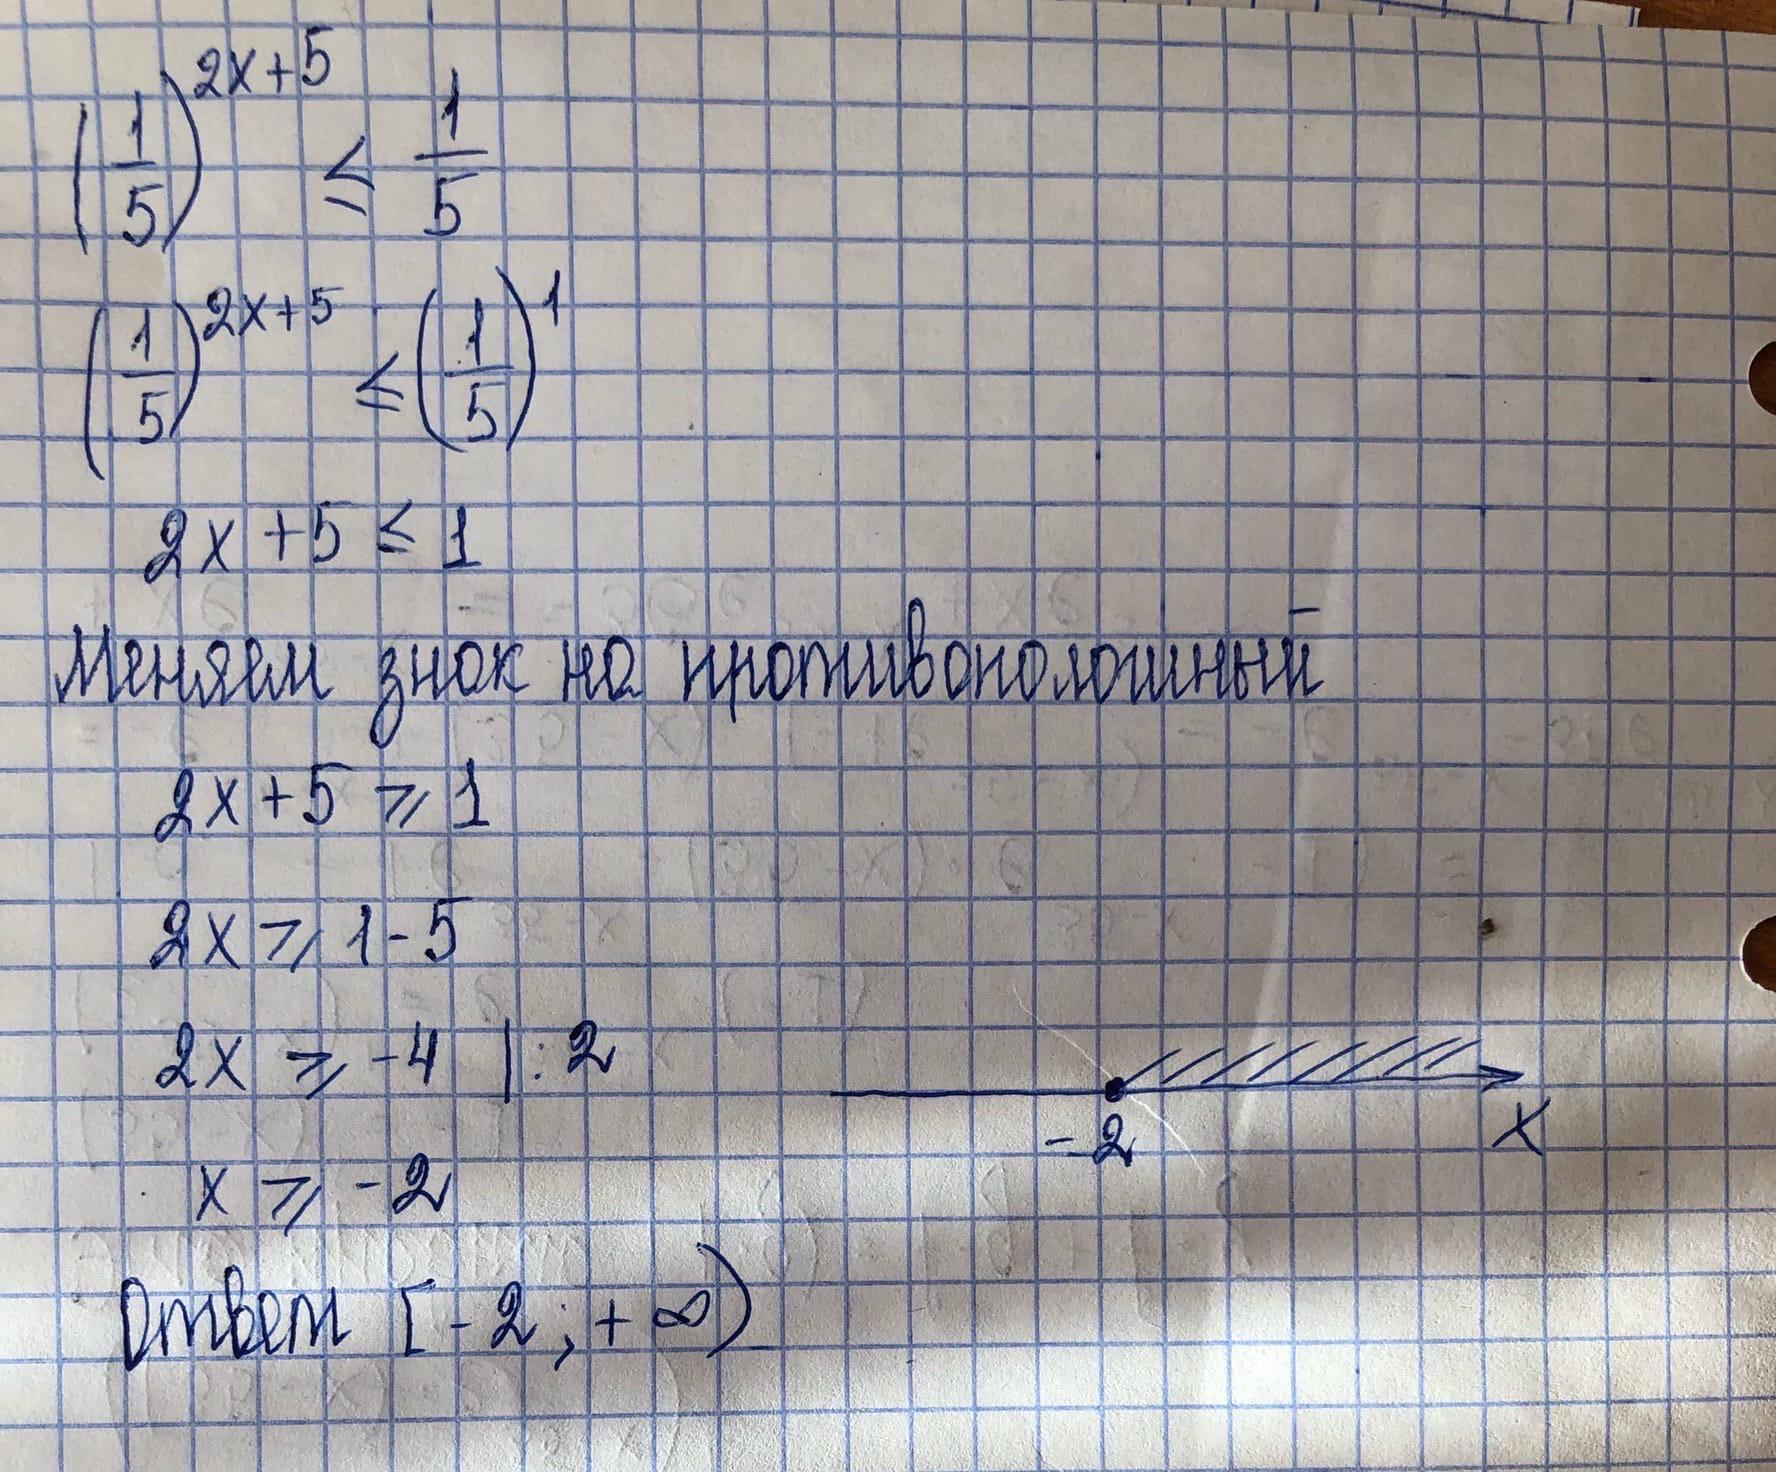 (1/5)^(2x+5) ≤ 1/5
(1/5)^(2x+5) ≤ (1/5)^1
2x+5 ≤ 1
Меняем знак на противоположный
2x+5 ⩾ 1
2x ⩾ 1-5
2x ⩾ -4 |:2
x ⩾ -2
-2 x
Ответ [-2;+∞)